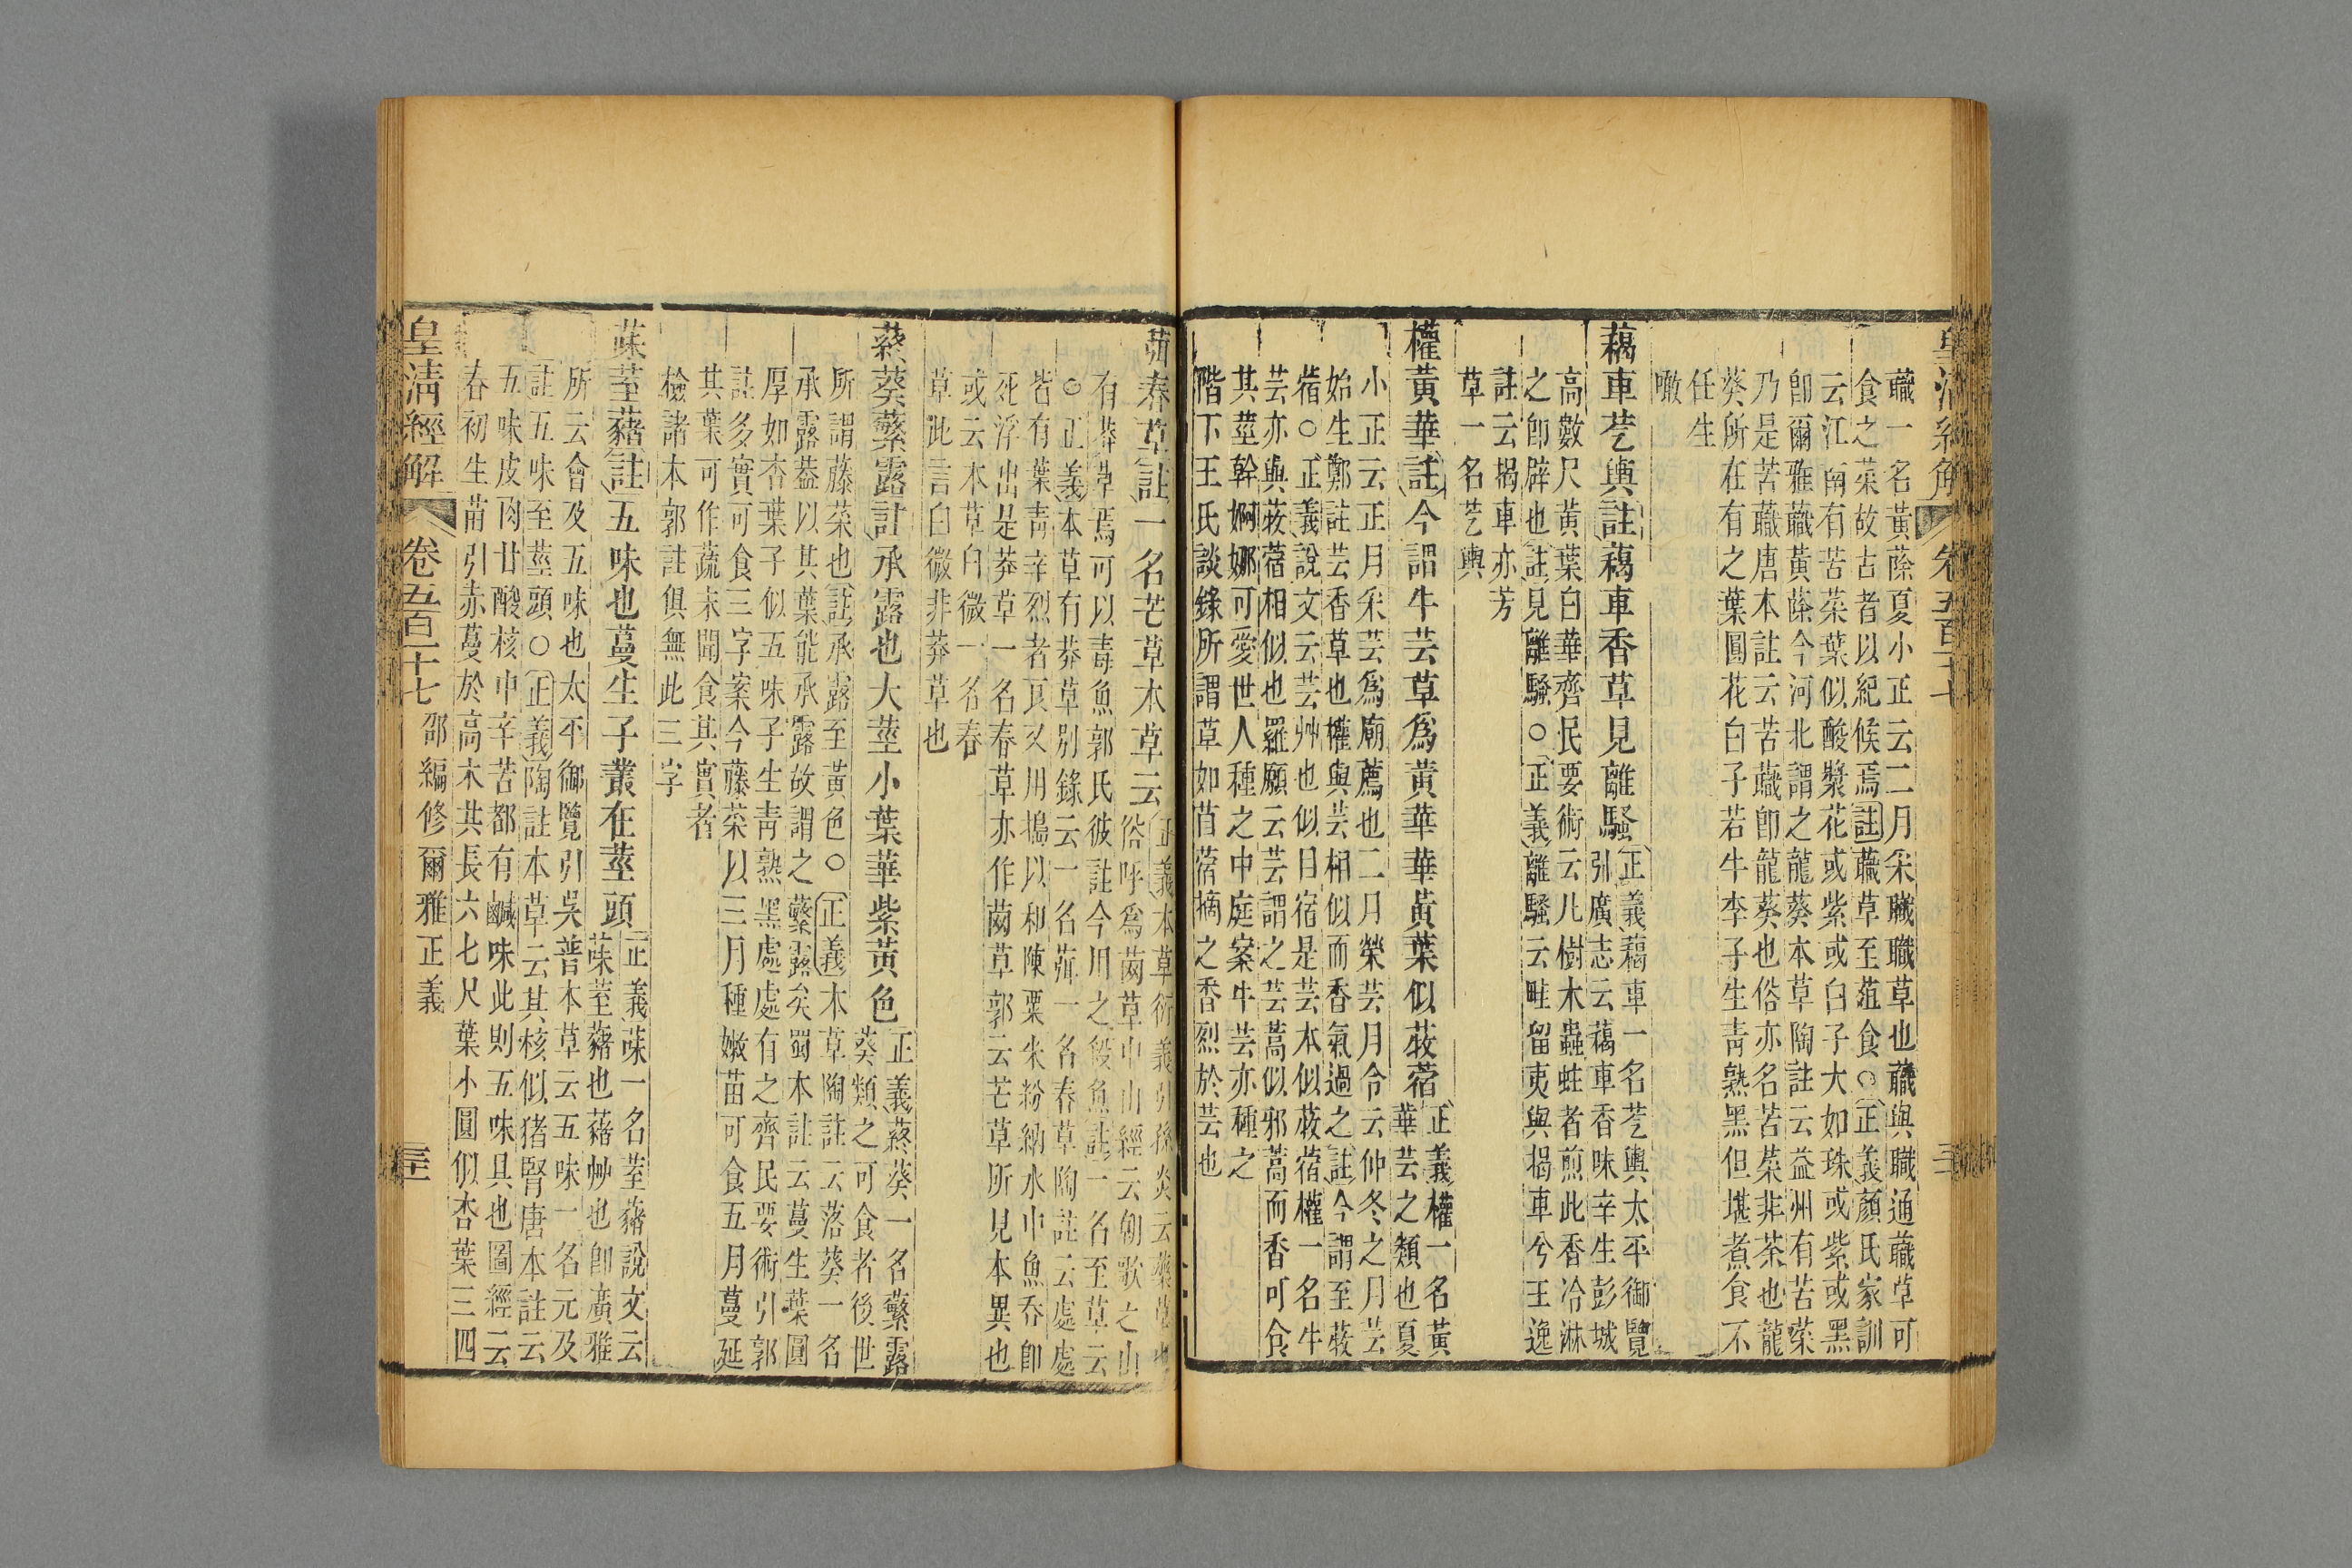 皇清經解 卷五百十七
蘵一名黃蒢夏小正云二月采蘵蘵草也蘵與職通蘵草可
食之菜故古者以紀候焉註蘵草至葅食○正義顏氏家訓
云江南有苦菜葉似酸漿花或紫或白子大如珠或紫或黑
卽爾雅蘵黃蒢今河北謂之龍葵本草陶註云益州有苦菜
乃是苦蘵唐本註云苦蘵卽龍葵也俗亦名苦菜非荼也龍
葵所在有之葉圓花白子若牛李子生靑熟黑但堪煮食不
任生
噉
藒車芞輿註藒車香草見離騷
正義藒車一名芞輿太平御覽
引廣志云藒車香味辛生彭城
高數尺黃葉白華齊民要術云凡樹木蟲蛀者煎此香冷淋
之卽辟也註見離騷○正義離騷云畦留夷與揭車兮王逸
註云揭車亦芳
草一名芞輿
權黃華註今謂牛芸草爲黃華華黃葉似荍蓿
正義權一名黃
華芸之類也夏
小正云正月采芸爲廟薦也二月榮芸月令云仲冬之月芸
始生鄭註芸香草也權與芸相似而香氣過之註今謂至荍
蓿○正義說文云芸艸也似目宿是芸本似荍蓿權一名牛
芸亦與荍蓿相似也羅願云芸謂之芸蒿似邪蒿而香可食
其莖幹婀娜可愛世人種之中庭案牛芸亦種之
階下王氏談錄所謂草如苜蓿摘之香烈於芸也
葞春草註一名芒草本草云
正義本草衍義引孫炎云藥草也
俗呼爲䒽草中山經云朝歌之山
有莽草焉可以毒魚郭氏彼註今用之殺魚註一名至草云
○正義本草有莽草別錄云一名葞一名春草陶註云處處
皆有葉靑辛烈者良又用搗以和陳粟米粉納水中魚吞卽
死浮出是莽草一名春草亦作䒽草郭云芒草所見本異也
或云本草白微一名春
草此言白微非莽草也
蔠葵蘩露註承露也大莖小葉華紫黃色
正義蔠葵一名蘩露
葵類之可食者後世
所謂藤菜也註承露至黃色○正義本草陶註云落葵一名
承露葢以其葉能承露故謂之蘩露矣蜀本註云蔓生葉圓
厚如杏葉子似五味子生靑熟黑處處有之齊民要術引郭
註多實可食三字案今藤菜以三月種嫩苗可食五月蔓延
其葉可作蔬未聞食其實者
檢諸本郭註俱無此三字
菋荎藸註五味也蔓生子叢在莖頭
正義菋一名荎藸說文云
菋荎藸也藸艸也卽廣雅
所云會及五味也太平御覽引吳普本草云五味一名元及
註五味至莖頭○正義陶註本草云其核似猪腎唐本註云
五味皮肉甘酸核中辛苦都有鹹味此則五味具也圖經云
春初生苗引赤蔓於高木其長六七尺葉小圓似杏葉三四
皇清經解 卷五百十七 邵編修爾雅正義